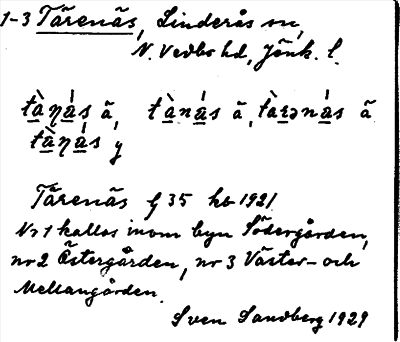 1-3 Tärenäs, Linderås sn,
N. Vedbo hd, Jönk. l.
tà̱ɳá̱s ä, tà̱ná̱s ä, tà̱rəná̱s ä
tà̱ɳá̱s y
Tärenäs f 35 hb 1921.
Nr 1 kallas inom byn Södergården,
nr 2 Östergården, nr 3 Väster- och
Mellangården.
Sven Sandberg 1929